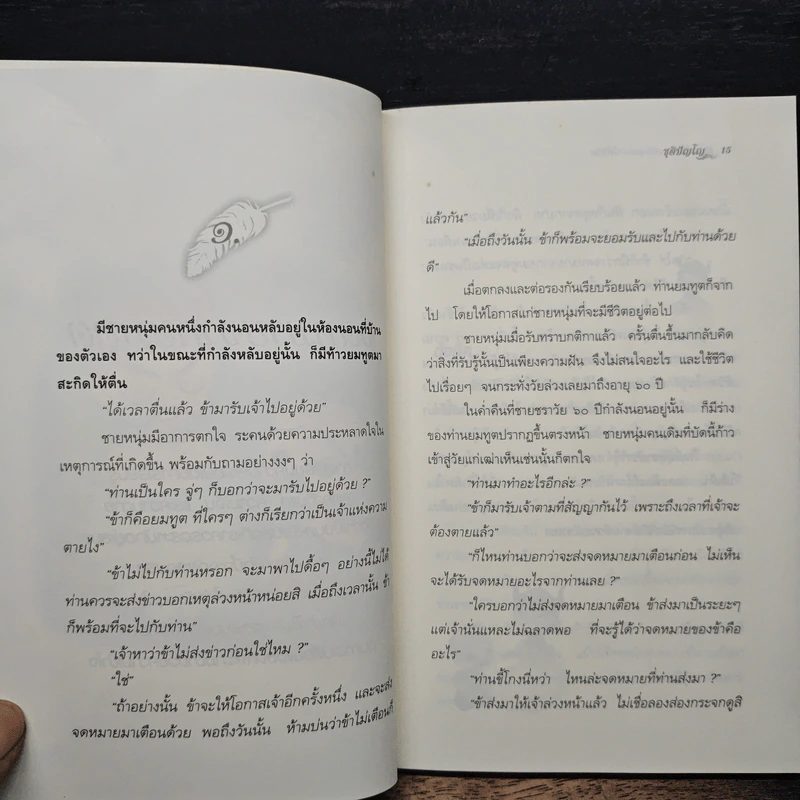 ๑
มีชายหนุ่มคนหนึ่งกำลังนอนหลับอยู่ในห้องนอนที่บ้าน
ของตัวเอง ทว่าในขณะที่กำลังหลับอยู่นั้น ก็มีท้าวยมทูตมา
สะกิดให้ตื่น
“ได้เวลาตื่นแล้ว ข้ามารับเจ้าไปอยู่ด้วย”
ชายหนุ่มมีอาการตกใจ ระคนด้วยความประหลาดใจใน
เหตุการณ์ที่เกิดขึ้น พร้อมกับถามอย่างงงๆ ว่า
“ท่านเป็นใคร จู่ๆ ก็บอกว่าจะมารับไปอยู่ด้วย ?”
“ข้าก็คือยมทูต ที่ใครๆ ต่างก็เรียกว่าเป็นเจ้าแห่งความ
ตายไง”
“ข้าไม่ไปกับท่านหรอก จะมาพาไปดื้อๆ อย่างนี้ไม่ได้
ท่านควรจะส่งข่าวบอกเหตุล่วงหน้าหน่อยสิ เมื่อถึงเวลานั้น ข้า
ก็พร้อมที่จะไปกับท่าน”
“เจ้าหาว่าข้าไม่ส่งข่าวก่อนใช่ไหม ?”
“ใช่”
“ถ้าอย่างนั้น ข้าจะให้โอกาสเจ้าอีกครั้งหนึ่ง และจะส่ง
จดหมายมาเตือนด้วย พอถึงวันนั้น ห้ามบ่นว่าข้าไม่เตือนก็
ชุติปัญโญ 15
แล้วกัน”
“เมื่อถึงวันนั้น ข้าก็พร้อมจะยอมรับและไปกับท่านด้วย
ดี”
เมื่อตกลงและต่อรองกันเรียบร้อยแล้ว ท่านยมทูตก็จาก
ไป โดยให้โอกาสแก่ชายหนุ่มที่จะมีชีวิตอยู่ต่อไป
ชายหนุ่มเมื่อรับทราบกติกาแล้ว ครั้นตื่นขึ้นมากลับคิด
ว่าสิ่งที่รับรู้นั้นเป็นเพียงความฝัน จึงไม่สนใจอะไร และใช้ชีวิต
ไปเรื่อยๆ จนกระทั่งวัยล่วงเลยมาถึงอายุ ๖๐ ปี
ในค่ำคืนที่ชายชราวัย ๖๐ ปีกำลังนอนอยู่นั้น ก็มีร่าง
ของท่านยมทูตปรากฏขึ้นตรงหน้า ชายหนุ่มคนเดิมที่บัดนี้ก้าว
เข้าสู่วัยแก่เฒ่าเห็นเช่นนั้นก็ตกใจ
“ท่านมาทำอะไรอีกล่ะ ?”
“ข้าก็มารับเจ้าตามที่สัญญากันไว้ เพราะถึงเวลาที่เจ้าจะ
ต้องตายแล้ว”
“ก็ไหนท่านบอกว่าจะส่งจดหมายมาเตือนก่อน ไม่เห็น
จะได้รับจดหมายอะไรจากท่านเลย ?”
“ใครบอกว่าไม่ส่งจดหมายมาเตือน ข้าส่งมาเป็นระยะๆ
แต่เจ้านั่นแหละไม่ฉลาดพอ ที่จะรู้ได้ว่าจดหมายของข้าคือ
อะไร”
“ท่านขี้โกงนี่หว่า ไหนล่ะจดหมายที่ท่านส่งมา ?”
“ข้าส่งมาให้เจ้าล่วงหน้าแล้ว ไม่เชื่อลองส่องกระจกดูสิ